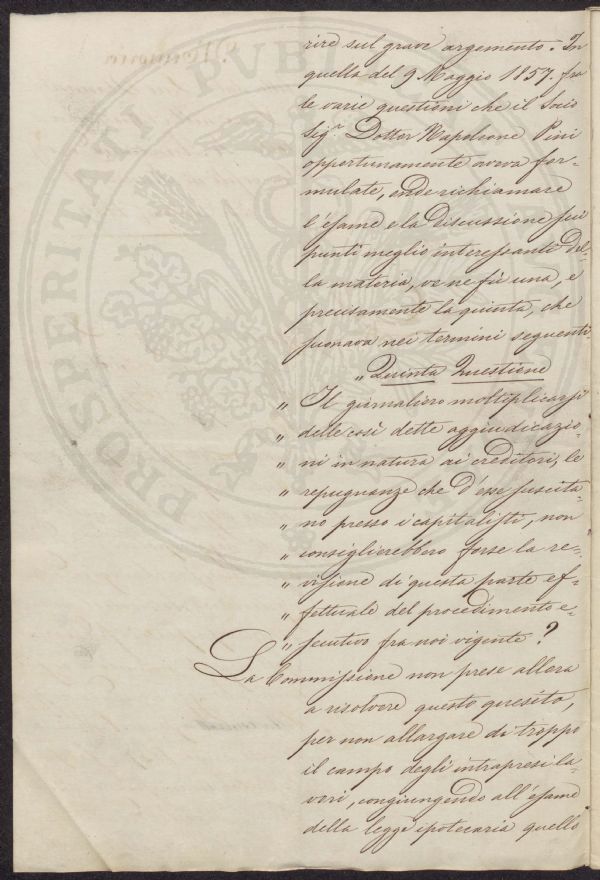 rire sul grave argomento. In
quella del 9 Maggio 1857. fra
le varie questioni che il Socio
Sig.r Dottor Napoleone Pini
opportunamente aveva for-
mulate, onde richiamare
l'esame e la discussione sui
punti meglio interessanti del-
la materia, ve ne fù una, e
precisamente la quinta, che
suonava nei termini seguenti
„ Quinta Questione
„ Il giornaliero moltoplicarsi
„ delle così dette aggiudicazio-
„ ni in natura ai creditori, le
„ repugnanze che d'esse suscita-
„ no presso i capitalisti, non
„ consiglierebbero forse la re-
„ visione di questa parte ef-
„ fettuale del procedimento e-
„ secutivo fra noi vigente?
La Commissione non prese allora
a risolvere questo quesito,
per non allargare di troppo
il campo degli intrapresi la-
vori, congiungendo all'esame
della legge ipotecaria quello
PROSPERITATI PUBLICAE